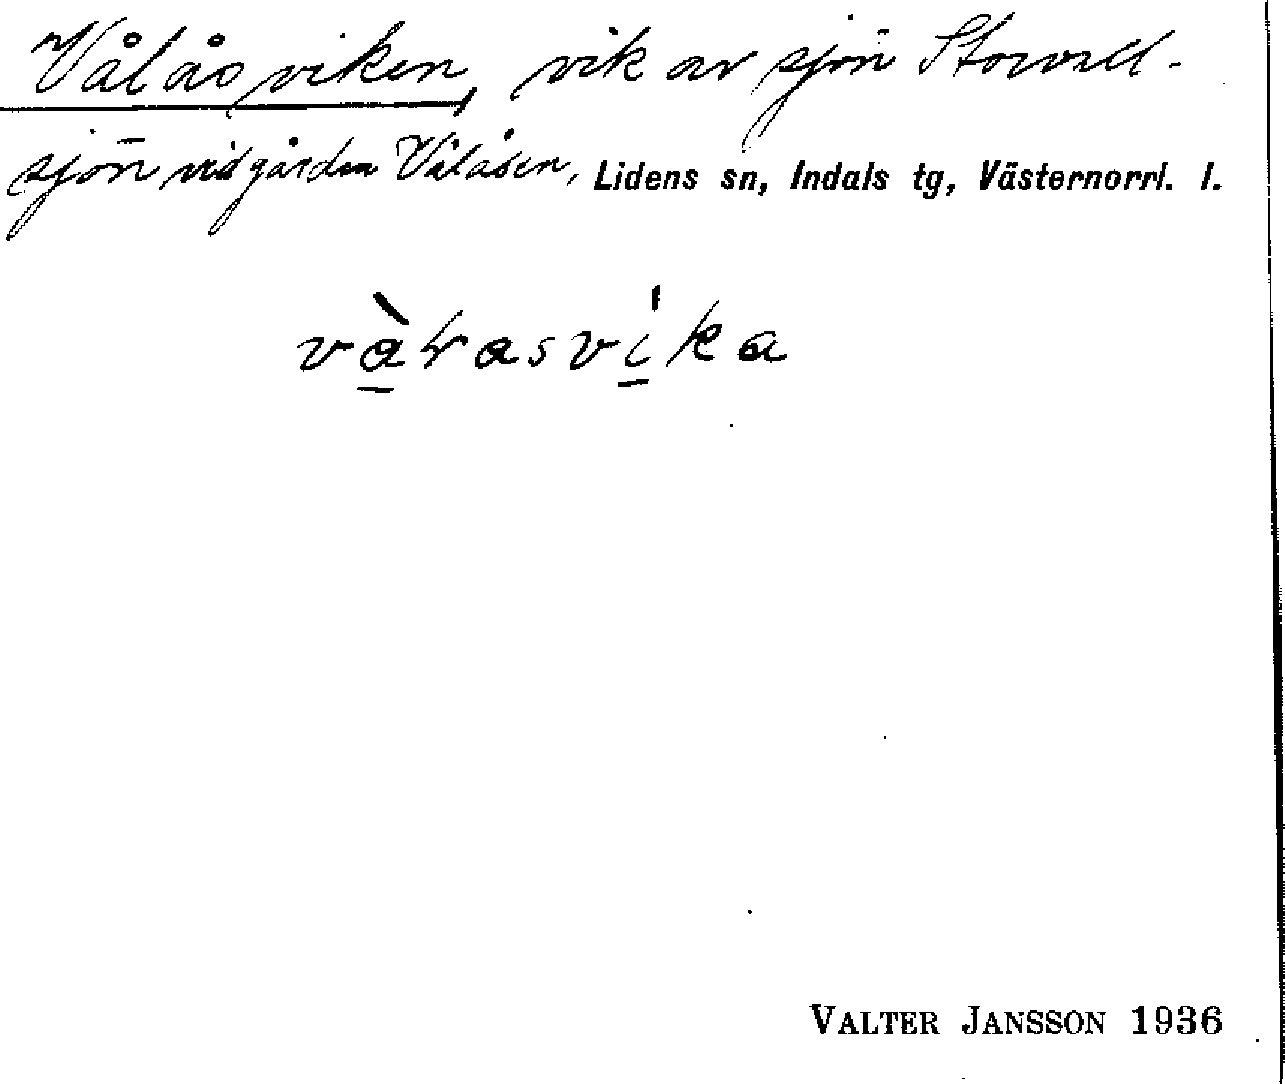 Vålåsviken, vik av sjön Storvall-
sjön vid gården Vålåsen, Lidens sn, Indals tg, Västernorrl. l.
vàłasvíka
VALTER JANSSON 1936